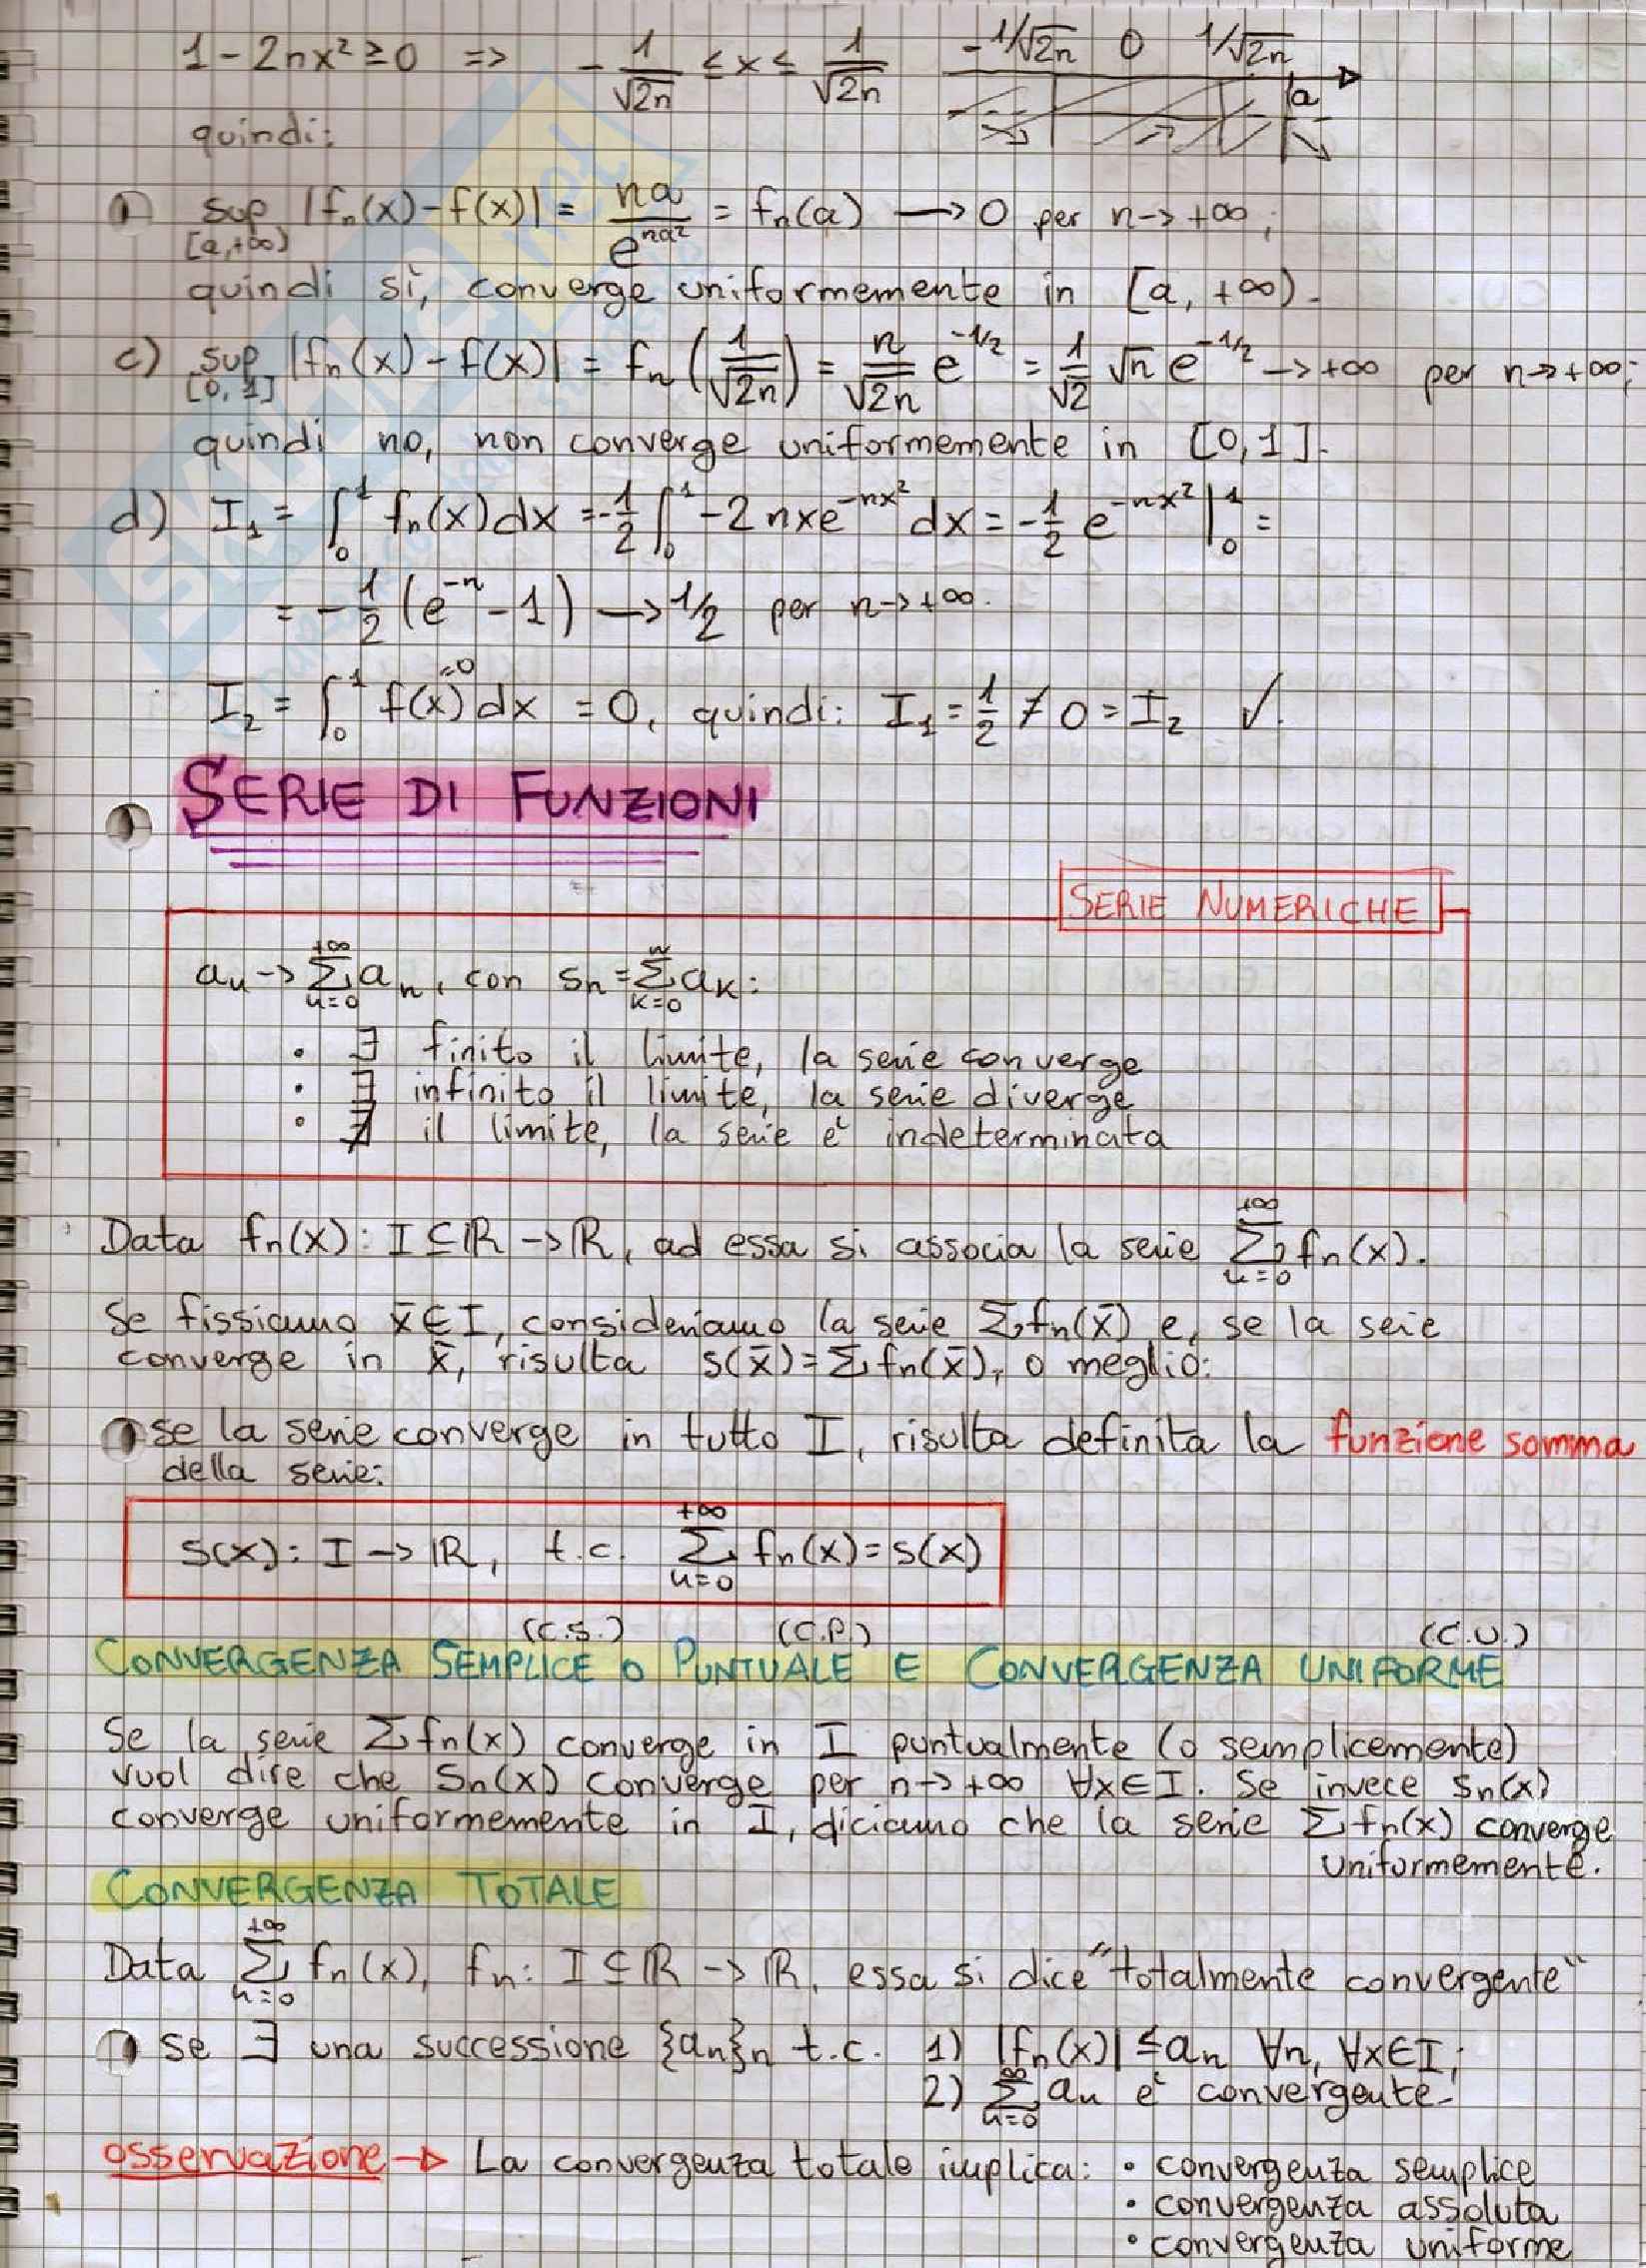 1-2nx²≥0 => -1/√2n ≤x≤ 1/√2n -1/√2n 0 1/√2n
a
quindi:
sup |fn(x)-f(x)| = na/e^na² = fn(a) → 0 per n→+∞;
[a,+∞)
quindi sì, converge uniformemente in [a, +∞).
c) sup |fn(x)-f(x)| = fn(1/√2n) = n/√2n e^-1/2 = 1/√2 √n e^-1/2 → +∞ per n→+∞;
[0,1]
quindi no, non converge uniformemente in [0,1].
d) I₁ = ∫₀¹ fn(x)dx = -1/2 ∫₀¹ -2nxe^-nx² dx = -1/2 e^-nx² |₀¹ =
= -1/2 (e^-n -1) → 1/2 per n→+∞.
I₂ = ∫₀¹ f(x)dx = 0, quindi: I₁ = 1/2 ≠ 0 = I₂ ✓.
=0
SERIE DI FUNZIONI
SERIE NUMERICHE
an → +∞Σn=0 an, con sn = nΣk=0 ak:
• ∃ finito il limite, la serie converge
• ∃ infinito il limite, la serie diverge
• ∄ il limite, la serie è indeterminata
Data fn(x): I⊆ℝ→ℝ, ad essa si associa la serie +∞Σn=0 fn(x).
Se fissiamo x̄∈I, consideriamo la serie Σfn(x̄) e, se la serie
converge in x̄, risulta s(x̄)=Σfn(x̄), o meglio:
se la serie converge in tutto I, risulta definita la funzione somma
della serie:
s(x): I→ℝ, t.c. +∞Σn=0 fn(x)=s(x)
(C.S.) (C.P.) (C.U.)
CONVERGENZA SEMPLICE O PUNTUALE E CONVERGENZA UNIFORME
Se la serie Σfn(x) converge in I puntualmente (o semplicemente)
vuol dire che Sn(x) converge per n→+∞ ∀x∈I. Se invece Sn(x)
converge uniformemente in I, diciamo che la serie Σfn(x) converge
uniformemente.
CONVERGENZA TOTALE
Data +∞Σn=0 fn(x), fn: I⊆ℝ→ℝ, essa si dice "totalmente convergente"
se ∃ una successione {an}n t.c. 1) |fn(x)| ≤ an ∀n, ∀x∈I;
2) ∞Σn=0 an è convergente.
osservazione → La convergenza totale implica: • convergenza semplice
• convergenza assoluta
• convergenza uniforme